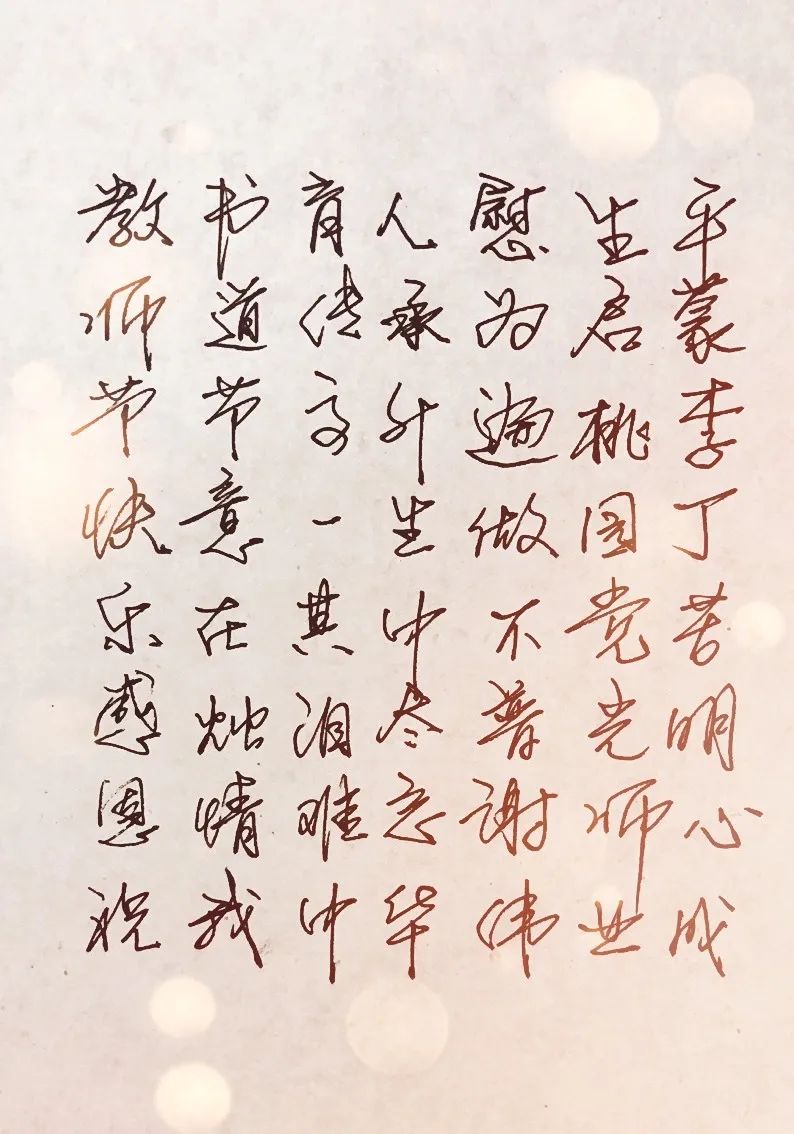 教书育人慰生平
师道传承为启蒙
节节高升遍桃李
快意一生做园丁
乐在其中不觉苦
感烛泪尽普光明
恩情难忘谢师心
祝我中华伟业成